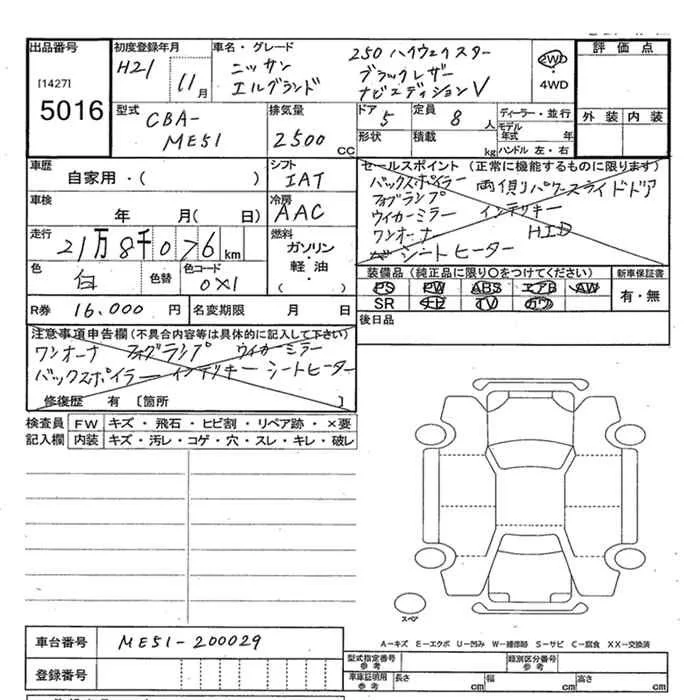 出品番号
[1427]
5016
初度登録年月
H21 11月
車名・グレード
ニッサン
エルグランド
250 ハイウェイスター
ブラックレザー
ナビエディションV
2WD
・
4WD
評価点
外装 内装
型式
CBA-
ME51
排気量
2500
CC
ドア
5
定員
8人
形状
積載
kg
ディーラー・並行
モデル
年式 年
ハンドル 左・右
車歴
自家用・( )
シフト
IAT
車検
年 月( 日)
冷房
AAC
走行
21万8千076km
燃料
ガソリン
・
軽油
・
( )
色
白
色替
色コード
0X1
セールスポイント (正常に機能するものに限ります)
バックスポイラー 両側パワースライドドア
フォグランプ
ウイカーミラー インテリキー
ワンオーナー HID
シートヒーター
装備品 (純正品に限り○をつけてください)
PS PW ABS エアB AW
SR ナビ TV カワ
新車保証書
有・無
R券 16,000 円
名変期限 月 日
後日品
注意事項申告欄(不具合内容等は具体的に記入して下さい)
ワンオーナ フォグランプ ウイカーミラー
バックスポイラー インテリキー シートヒーター
修復歴 有 〔箇所 〕
検査員
記入欄
FW キズ・飛石・ヒビ割・リペア跡・×要
内装 キズ・汚レ・コゲ・穴・スレ・キレ・破レ
スペア
車台番号 ME51-200029
登録番号
A-キズ E-エクボ U-凹み W-補修跡 S-サビ C-腐食 XX-交換済
型式指定番号
参考
類別区分番号
参考
車庫証明用
参考
長さ cm 幅 cm 高さ cm